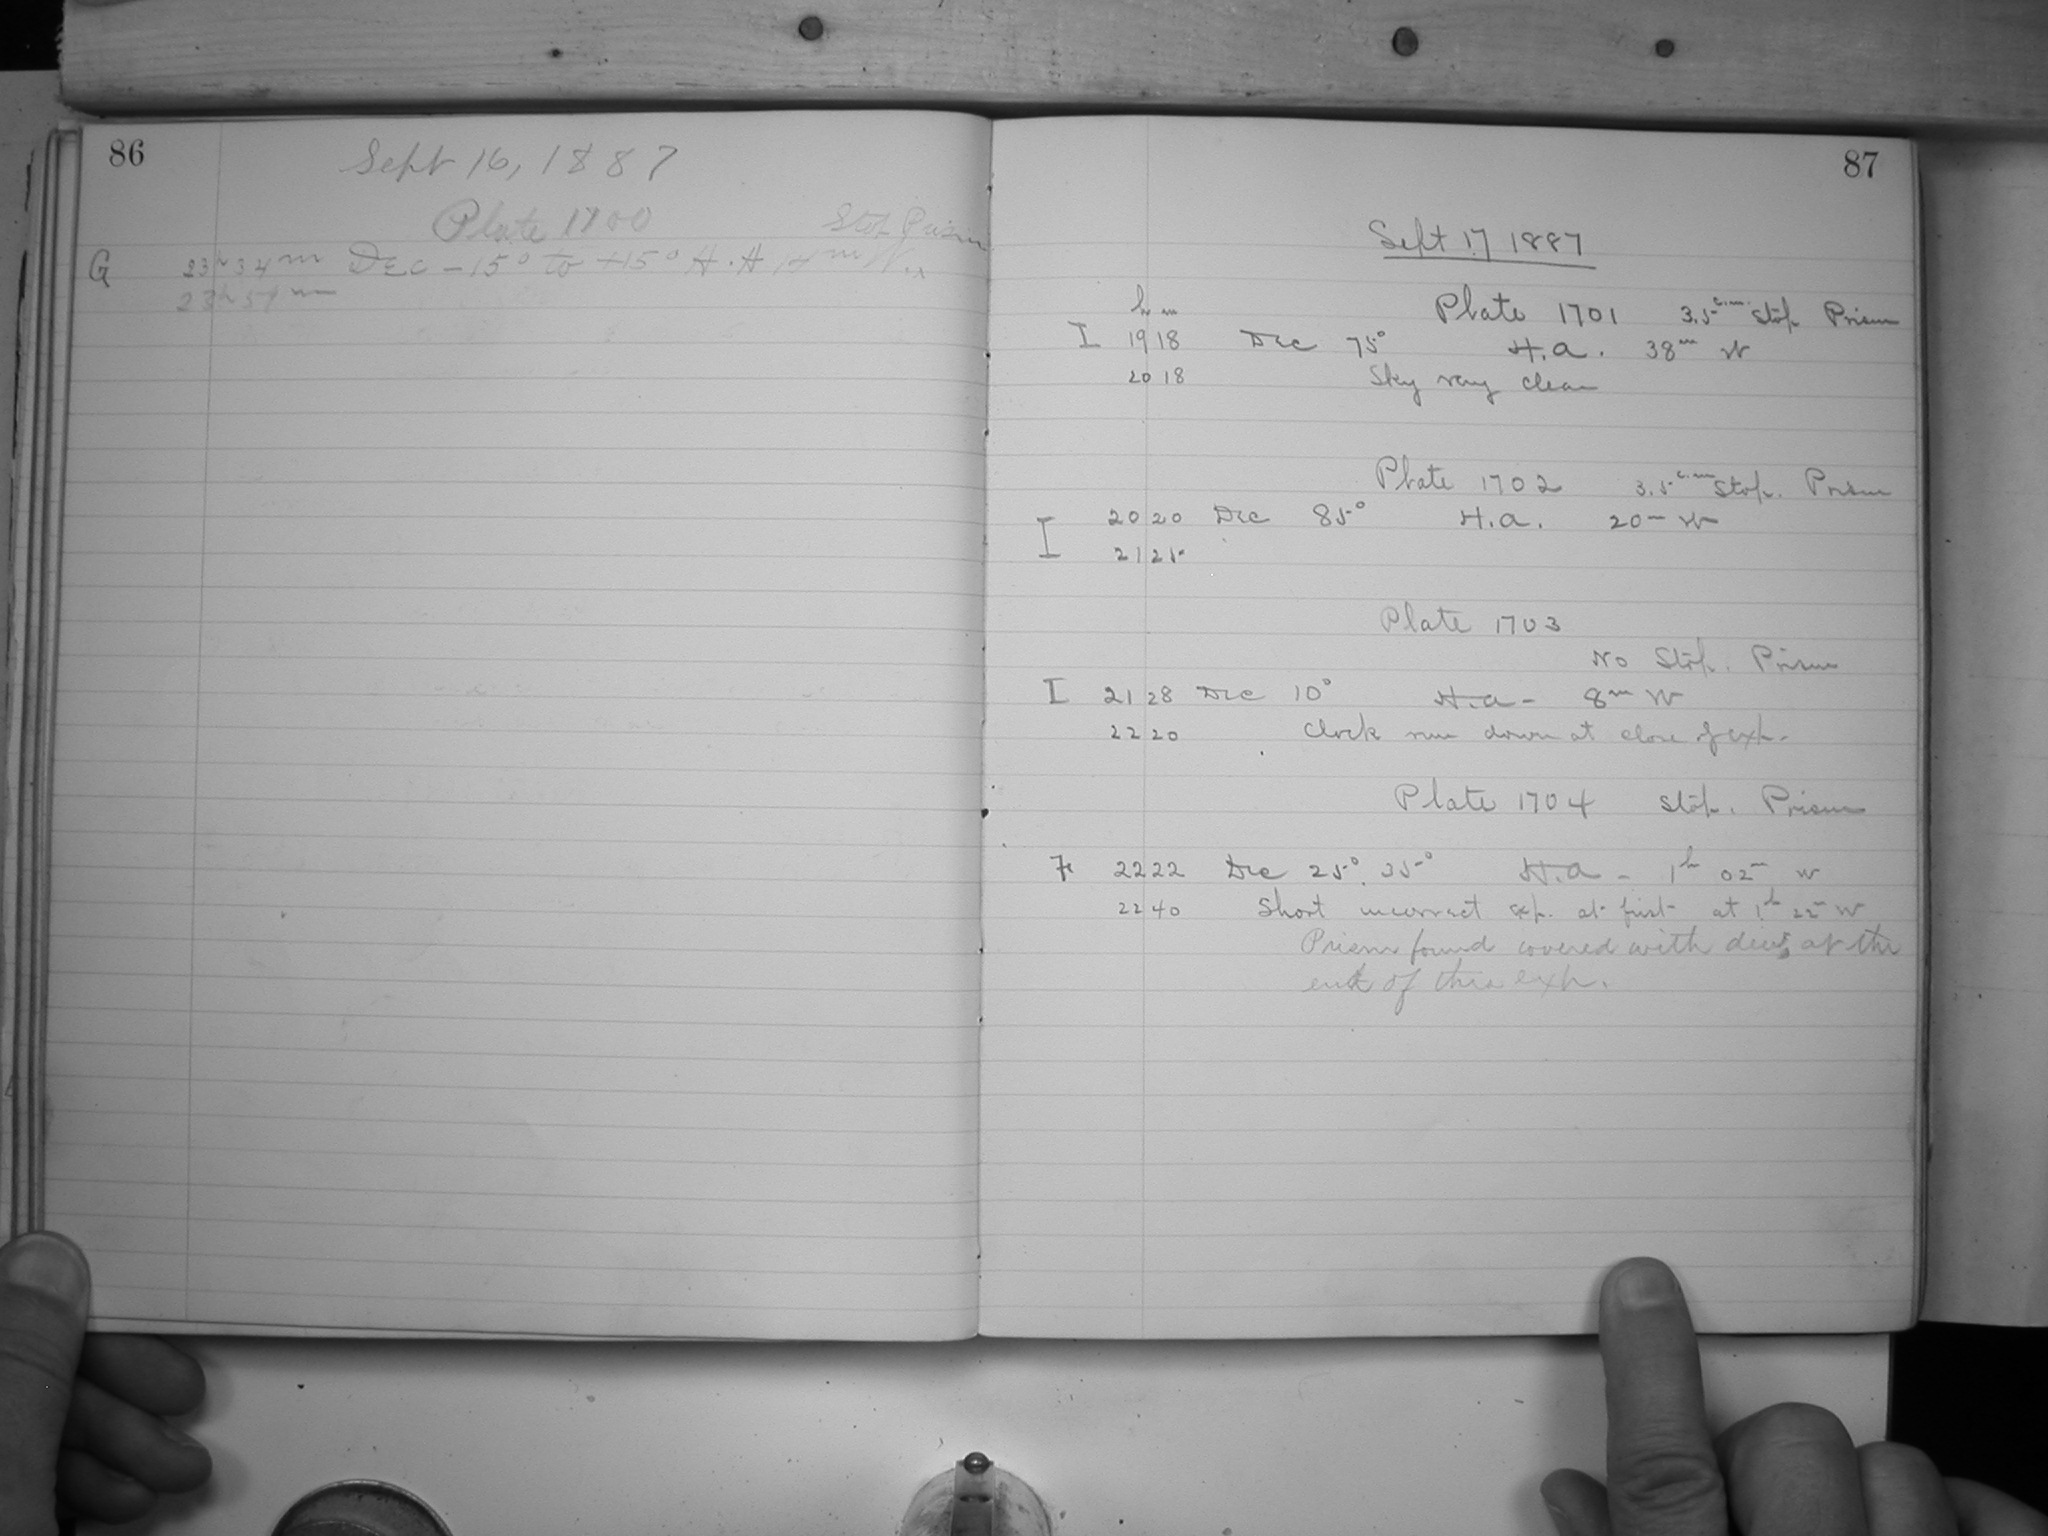 86
Sept 16, 1887
Plate 1700 Stop Prism
G 23h 34m Dec -15° to +15° H.A 14m W.
23h 54m
87
Sept 17 1887
h m
Plate 1701 3.5 c.m. Stop Prism
I 19 18 Dec 75° H.a. 38m W
20 18 Sky very clear
Plate 1702 3.5 c.m Stop. Prism
I 20 20 Dec 85° H.a. 20m W
21 25
Plate 1703
No Stop. Prism
I 21 28 Dec 10° H.a - 8m W
22 20 Clock run down at close of exp.
Plate 1704 Stop. Prism
F 22 22 Dec 25°. 35° H.a - 1h 02m W
22 40 Short incorrect exp. at first at 1h 22m W
Prism found covered with dew, at the
end of this exp.